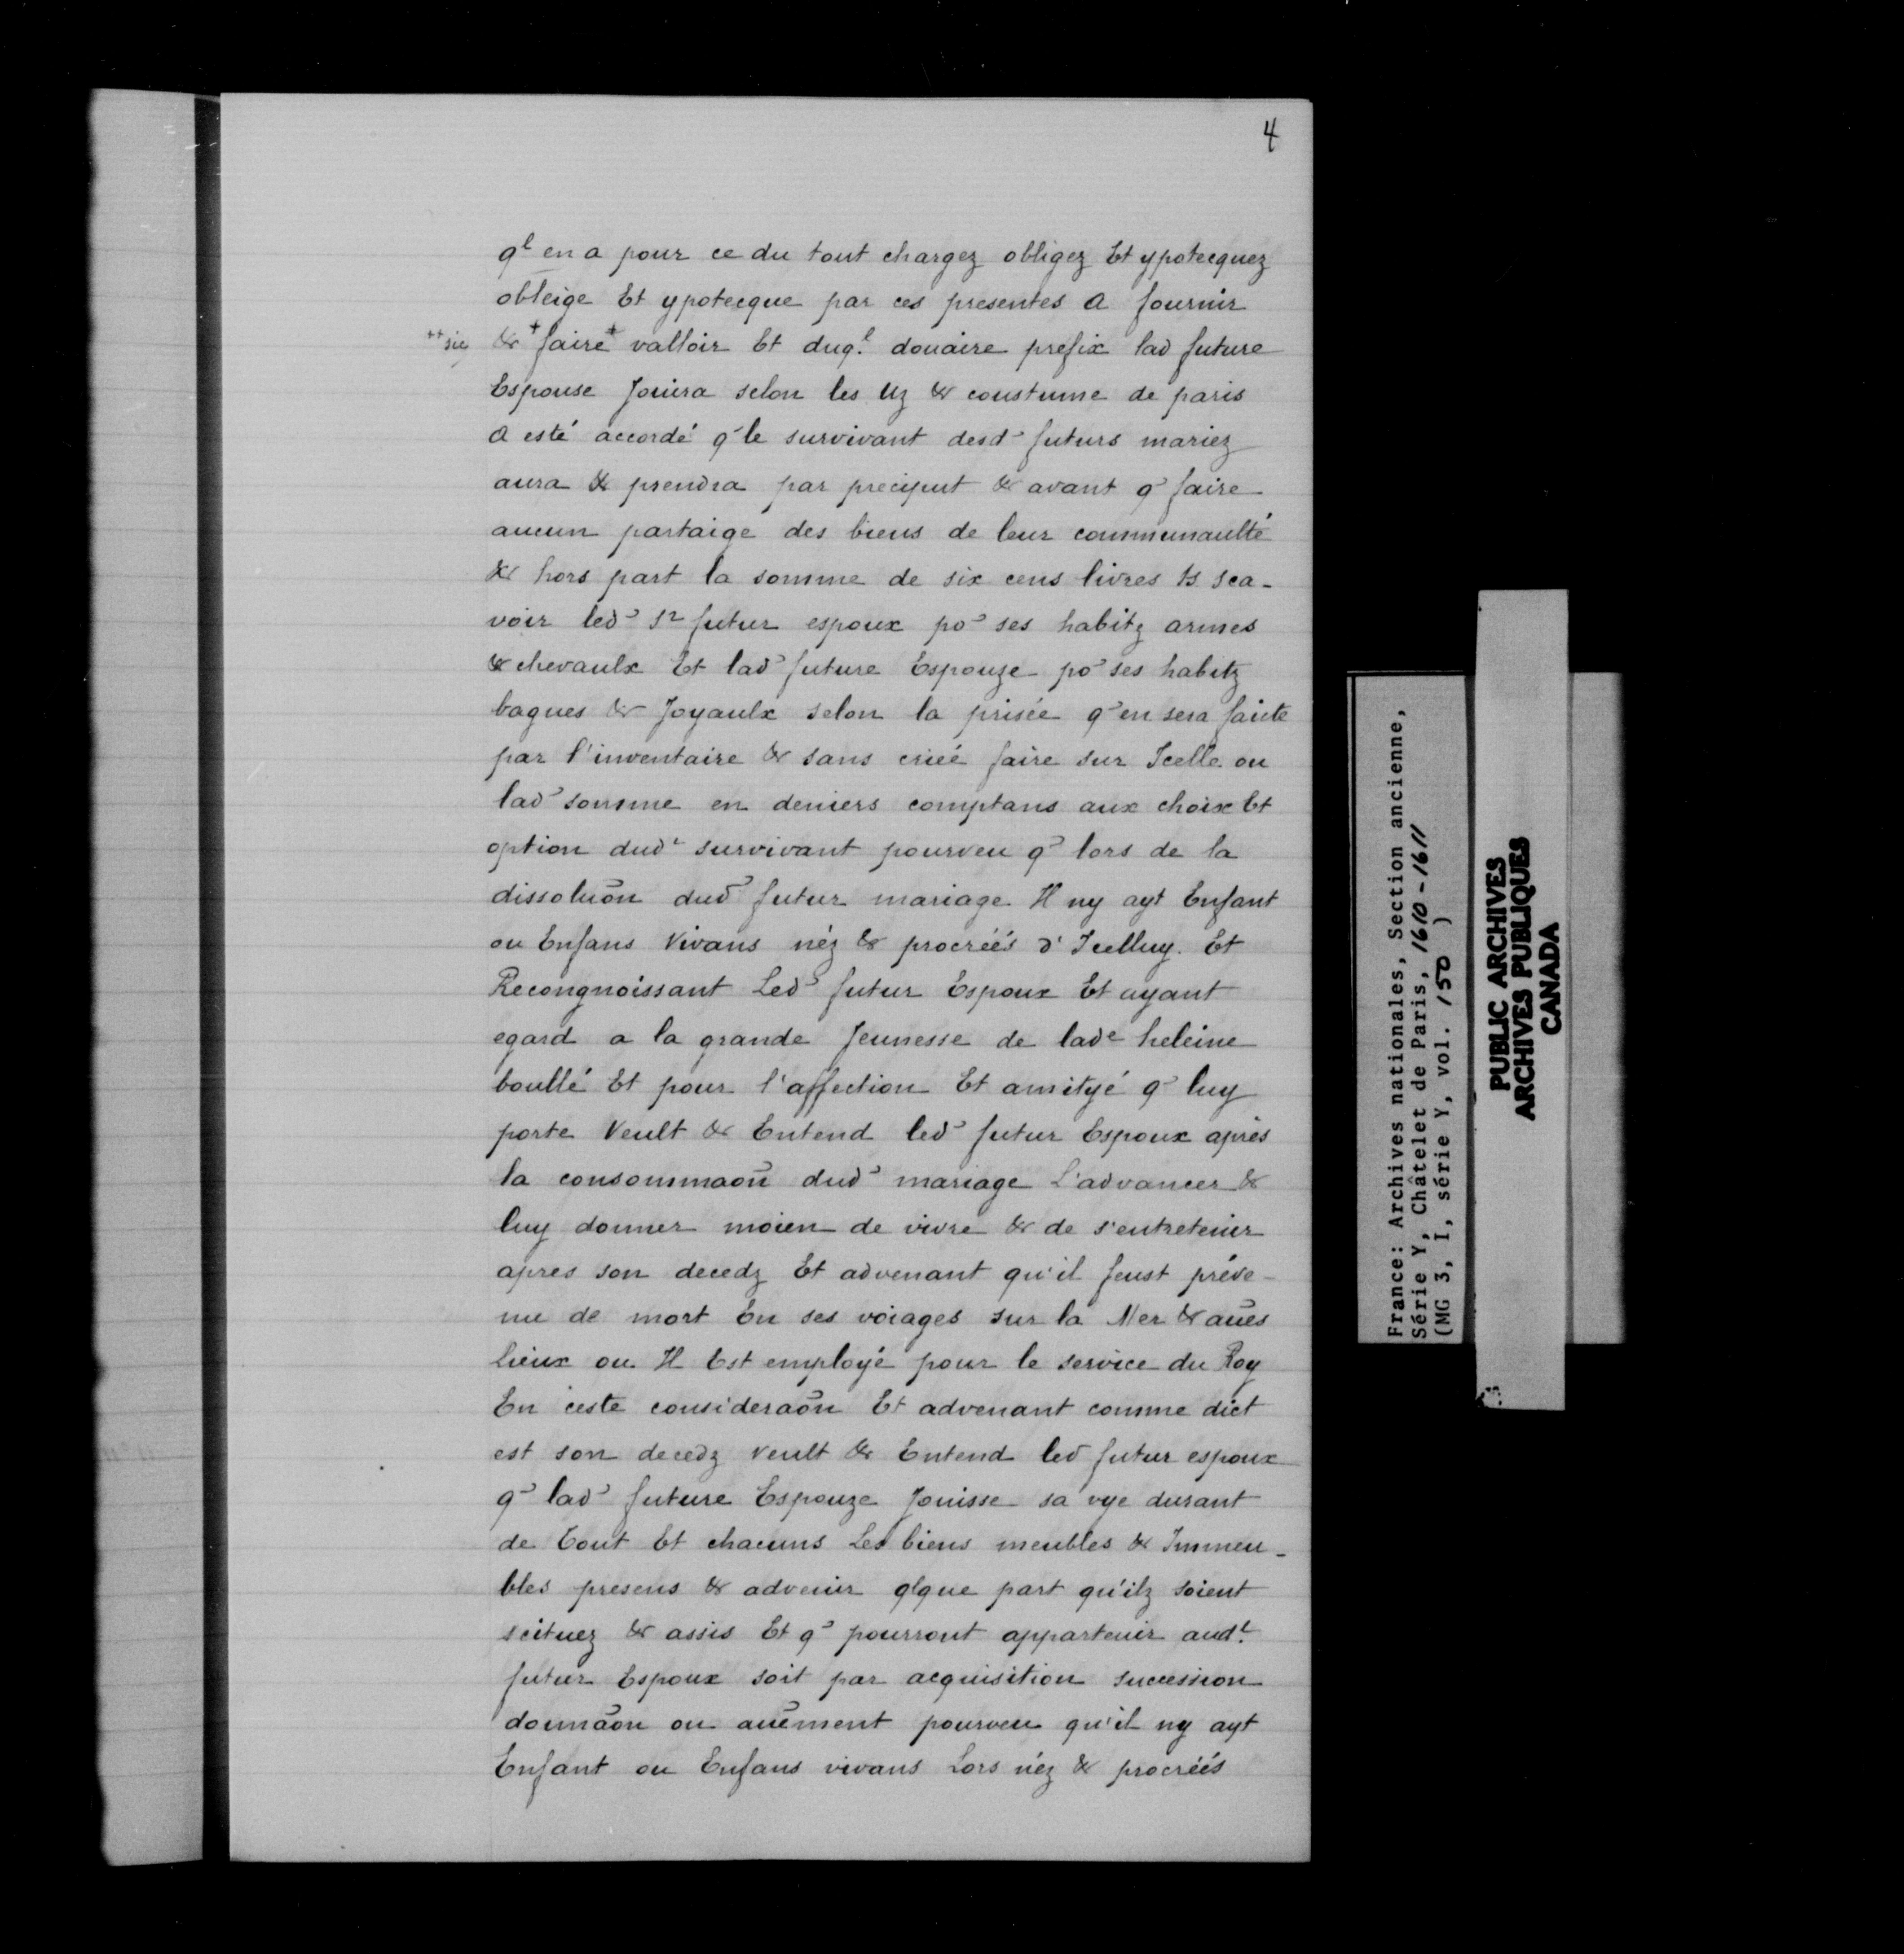 4
q^l en a pour ce du tout chargez obligez Et ypotecquez
obleige Et ypotecque par ces presentes A fournir
++ sic & + faire + valloir Et duq.^l douaire prefix lad future
Espouse Jouira selon les Uz & coustume de paris
A esté accordé q' le survivant desd' futurs mariez
aura & prendra par preciput & avant q' faire
aucun partaige des biens de leur communaulté
& hors part la somme de six cens livres ts sca-
voir led' Sr futur espoux po' ses habitz armes
& chevaulx Et lad' future Espouze po' ses habitz
bagues & Joyaulx selon la prisée q' en sera faicte
par l'inventaire & sans criée faire sur Icelle ou
lad' somme en deniers comptans aux choix Et
option dud^t survivant pourveu q' lors de la
dissoluõn dud' futur mariage Il ny ayt Enfant
ou Enfans Vivans néz & procréés d'Icelluy. Et
Recongnoissant Led' futur Espoux Et ayant
egard a la grande Jeunesse de lad^e heleine
boullé Et pour l'affection Et amityé q' luy
porte Veult & Entend led' futur Espoux après
la consommaõn dud' mariage L'advancer &
luy donner moien de vivre & de s'entretenir
apres son decedz Et advenant qu'il feust préve-
nu de mort En ses voiages sur la Mer & aũes
lieux ou Il Est employé pour le service du Roy
En ceste consideraõn Et advenant comme dict
est son decedz veult & Entend led futur espoux
q' lad' future Espouze Jouisse sa vye durant
de Tout Et chacuns Les biens meubles & Immeu-
bles presens & advenir qlque part qu'ilz soient
scituez & assis Et q' pourront appartenir aud.^t
futur Espoux soit par acquisition succession
donnaõn ou auẽment pourveu qu'il ny ayt
Enfant ou Enfans vivans Lors néz & procréés
France: Archives nationales, Section ancienne,
Série Y, Châtelet de Paris, 1610-1611
(MG 3, I, série Y, vol. 150 )
PUBLIC ARCHIVES
ARCHIVES PUBLIQUES
CANADA